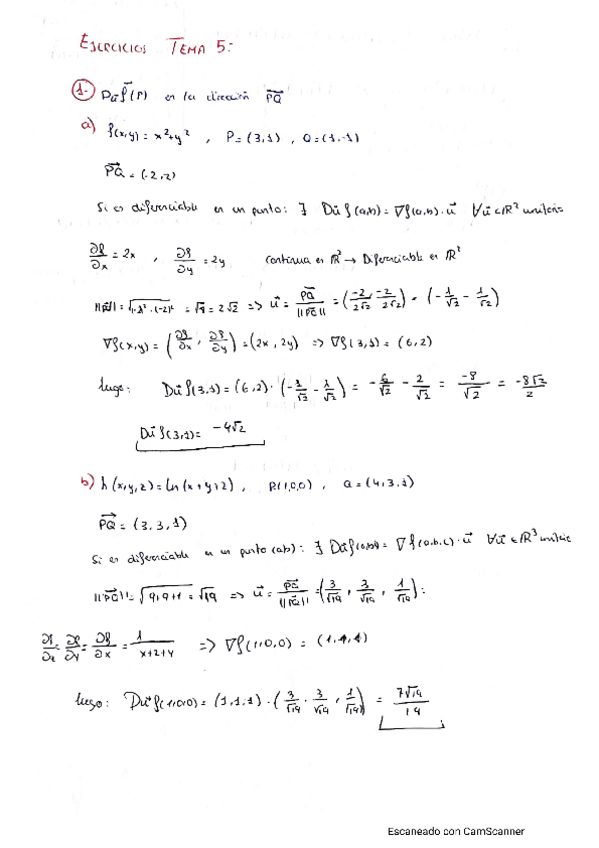 EJERCICIOS TEMA 5:
1- Dū f(P) en la dirección PQ
a) f(x,y) = x²+y² , P=(3,1) , Q=(1,-1)
PQ = (-2,-2)
Si es diferenciable en un punto: ∃ Dū f(a,b) = ∇f(a,b)·ū ∀ū∈ℝ² unitario
∂f/∂x = 2x , ∂f/∂y = 2y continua en ℝ² → Diferenciable en ℝ²
||PQ|| = √((-2)²+(-2)²) = √8 = 2√2 => ū = PQ/||PQ|| = (-2/2√2, -2/2√2) = (-1/√2, -1/√2)
∇f(x,y) = (∂f/∂x, ∂f/∂y) = (2x, 2y) => ∇f(3,1) = (6,2)
luego: Dū f(3,1) = (6,2)·(-1/√2, -1/√2) = -6/√2 - 2/√2 = -8/√2 = -8√2/2
Dū f(3,1) = -4√2
b) h(x,y,z) = ln(x+y+z) , P(1,0,0) , Q=(4,3,1)
PQ = (3,3,1)
Si es diferenciable en un punto (a,b): ∃ Dū f(a,b) = ∇f(a,b,c)·ū ∀ū∈ℝ³ unitario
||PQ|| = √(9+9+1) = √19 => ū = PQ/||PQ|| = (3/√19, 3/√19, 1/√19):
∂f/∂z = ∂f/∂y = ∂f/∂x = 1/(x+z+y) => ∇f(1,0,0) = (1,1,1)
luego: Dū f(1,0,0) = (1,1,1)·(3/√19, 3/√19, 1/√19) = 7√19/19
Escaneado con CamScanner